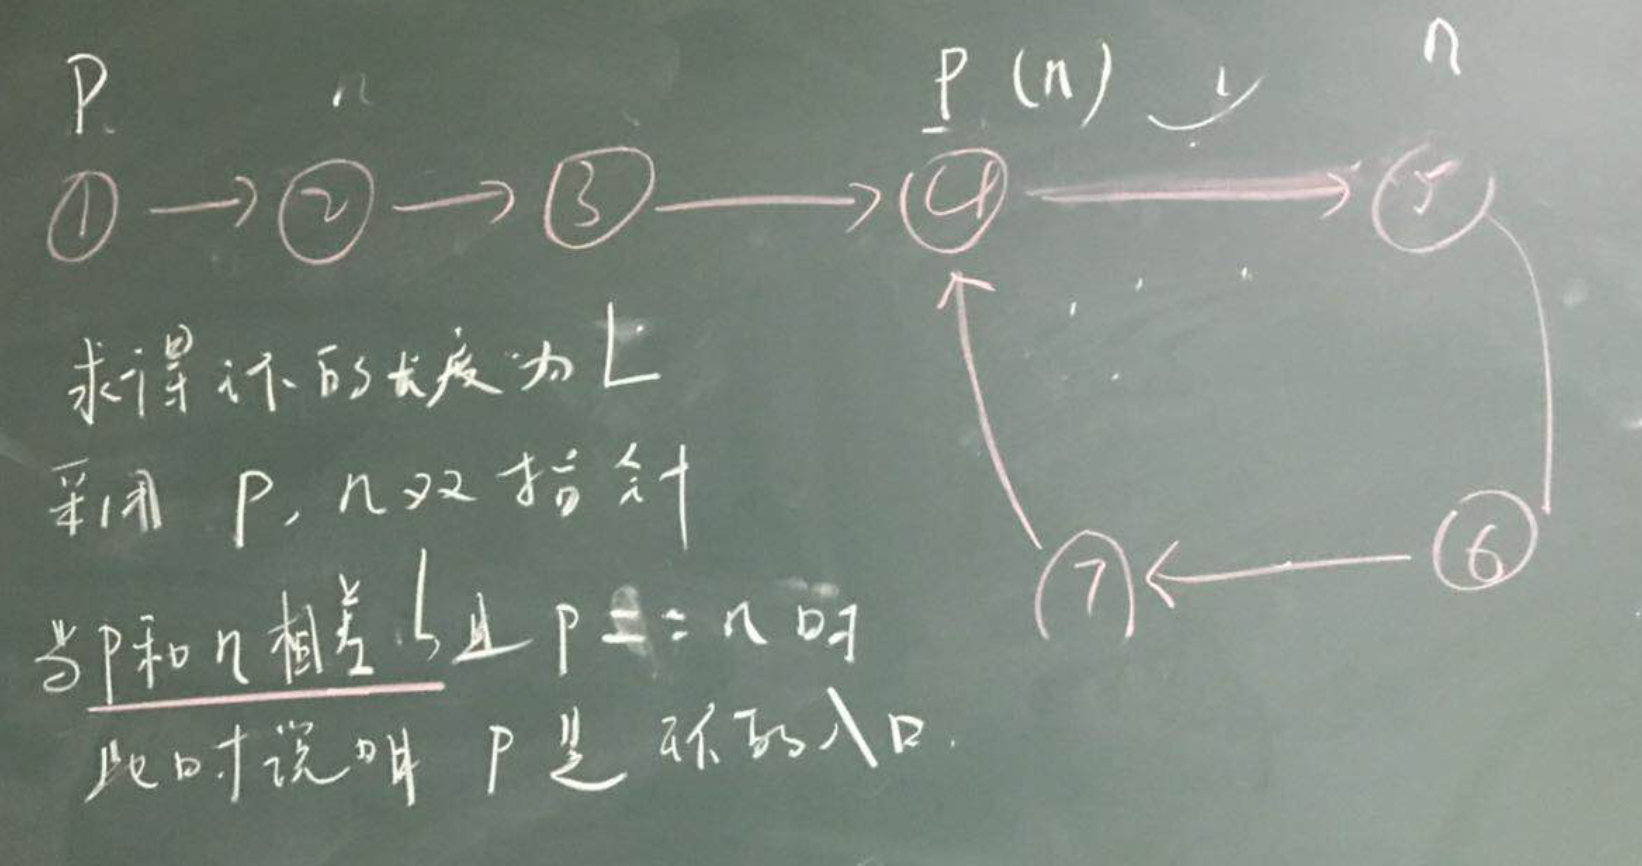 P n P (n) n
① → ② → ③ → ④ → ⑤
求得环的长度为 L
采用 P, n 双指针
⑦ ← ⑥
当P和n相差L且 P == n 时
此时说明 P是 环的入口.